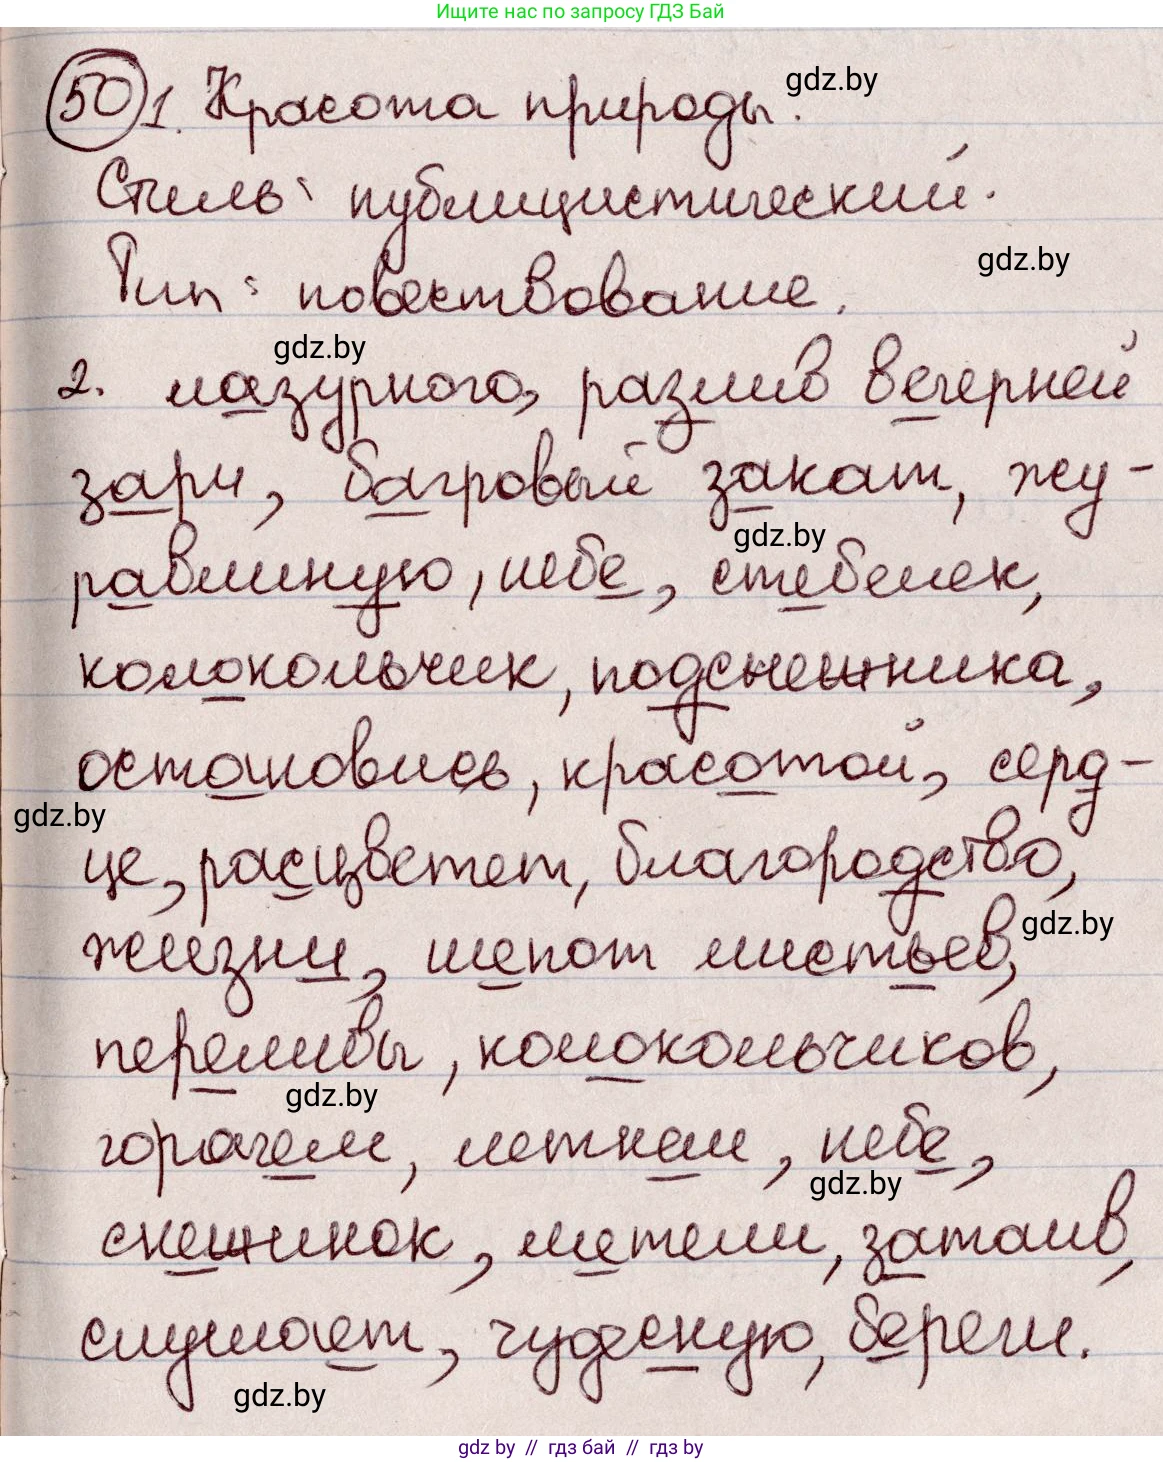 Ищите нас по запросу ГДЗ Бай
50 1. Красота природы.
gdz.by
Стиль: публицистический.
Тип: повествование.
gdz.by
gdz.by
2. лазурного, разлив вечерней
зари, багровый закат, жу-
gdz.by
равлиную, небе, стебелек,
колокольчик, подснежника,
остановись, красотой, серд-
gdz.by
це, расцветет, благородство,
жизни, шепот листьев,
gdz.by
переливы, колокольчиков,
gdz.by
горячем, летнем, небе,
gdz.by
снежинок, метели, затаив,
слушает, чудесную, береги.
gdz.by
gdz by // гдз бай // гдз by